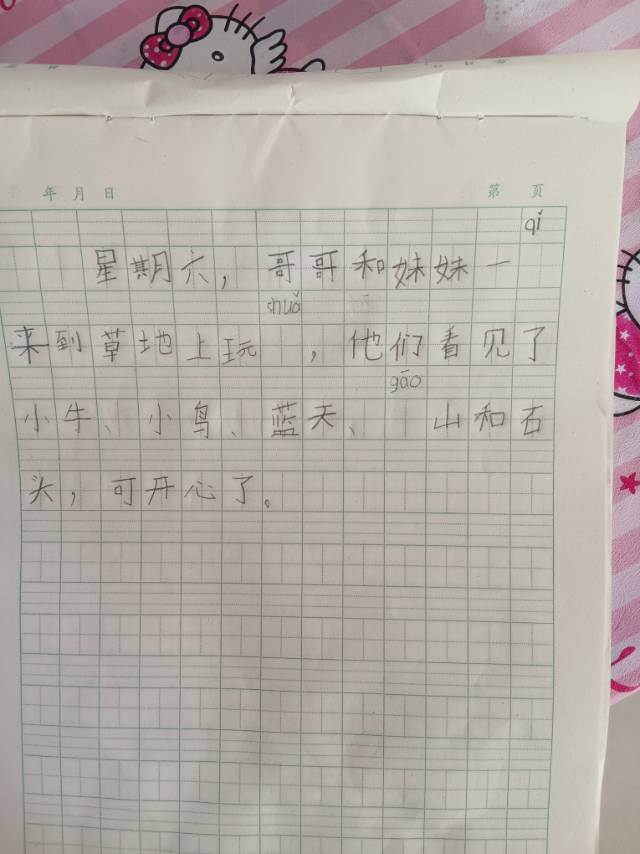 年 月 日 第 页
qǐ
星期六，哥哥和妹妹一
shuǎ
来到草地上玩 ，他们看见了
gāo
小牛、小鸟、蓝天、 山和石
头，可开心了。